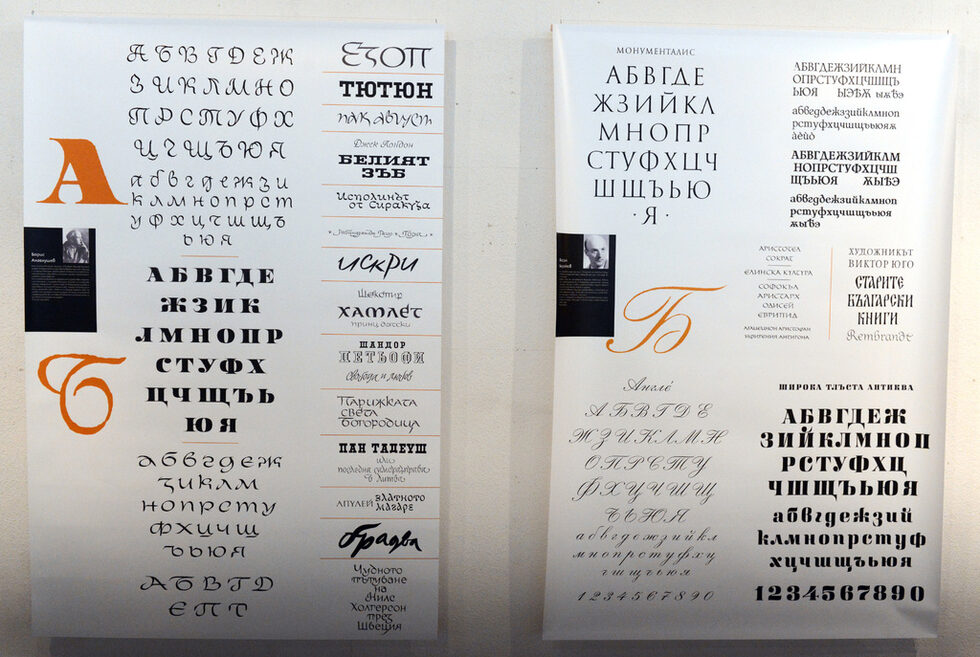 А Б В Г Д Е Ж
З И К Л М Н О
П Р С Т У Ф Х
Ц Ч Щ Ъ Ю Я
А
а б в г д е ж з и
к л м н о п р с т
у ф х ц ч ш щ ъ
ь ю я
Борис
Ангелушев
А Б В Г Д Е
Ж З И К
Л М Н О П Р
С Т У Ф Х
Ц Ч Щ Ъ Ь
Ю Я
Б
а б в г д е ж
з и к л м
н о п р с т у
ф х ц ч ш
ъ ь ю я
А Б В Г Д
Е П Т
ЕЗОП
ТЮТЮН
пак август
Джек Лондон
БЕЛИЯТ
ЗЪБ
Исполинът
от Сиракуза
искри
Шекспир
хамлет
принц датски
ШАНДОР
ПЕТЬОФИ
свобода и любов
Парижката
света
Богородица
ПАН ТАДЕУШ
или
в Литва
АПУЛЕЙ ЗЛАТНОТО
МАГАРЕ
брадва
Чудното
пътуване
на
Нилс
Холгерсон
през
Швеция
МОНУМЕНТАЛИС
АБВГДЕ
ЖЗИЙКЛ
МНОПР
СТУФХЦЧ
ШЩЪЬЮ
· Я ·
АБВГДЕЖЗИЙКЛМН
ОПРСТУФХЦЧШЩЪ
ЬЮЯ ЫЭѢѪ ыѫѣэ
абвгдежзийклмноп
рстуфхцчшщъьюяѫ
àѐѝò
АБВГДЕЖЗИЙКЛМ
НОПРСТУФХЦЧШ
ЩЪЬЮЯ ѪЫѢЭ
абвгдежзийклмноп
рстуфхцчшщъьюя
ѫыѣэ
Б
АРИСТОТЕЛ
СОКРАТ
ЕЛИНСКА КУЛТУРА
СОФОКЪЛ
АРИСТАРХ
ОДИСЕЙ
ЕВРИПИД
ХУДОЖНИКЪТ
ВИКТОР ЮГО
СТАРИТЕ
БЪЛГАРСКИ
КНИГИ
Rembrandt
Англе́
А Б В Г Д Е
Ж З И К Л М Н
О П Р С Т У
Ф Х Ц Ч Ш Щ
Ъ Ь Ю Я
а б в г д е ж з и й к л
м н о п р с т у ф х ц
ч ш щ ъ ь ю я
1 2 3 4 5 6 7 8 9 0
ШИРОКА ТЛЪСТА АНТИКВА
АБВГДЕЖ
ЗИЙКЛМНОП
РСТУФХЦ
ЧШЩЪЬЮЯ
абвгдежзий
клмнопрстуф
хцчшщъьюя
1234567890